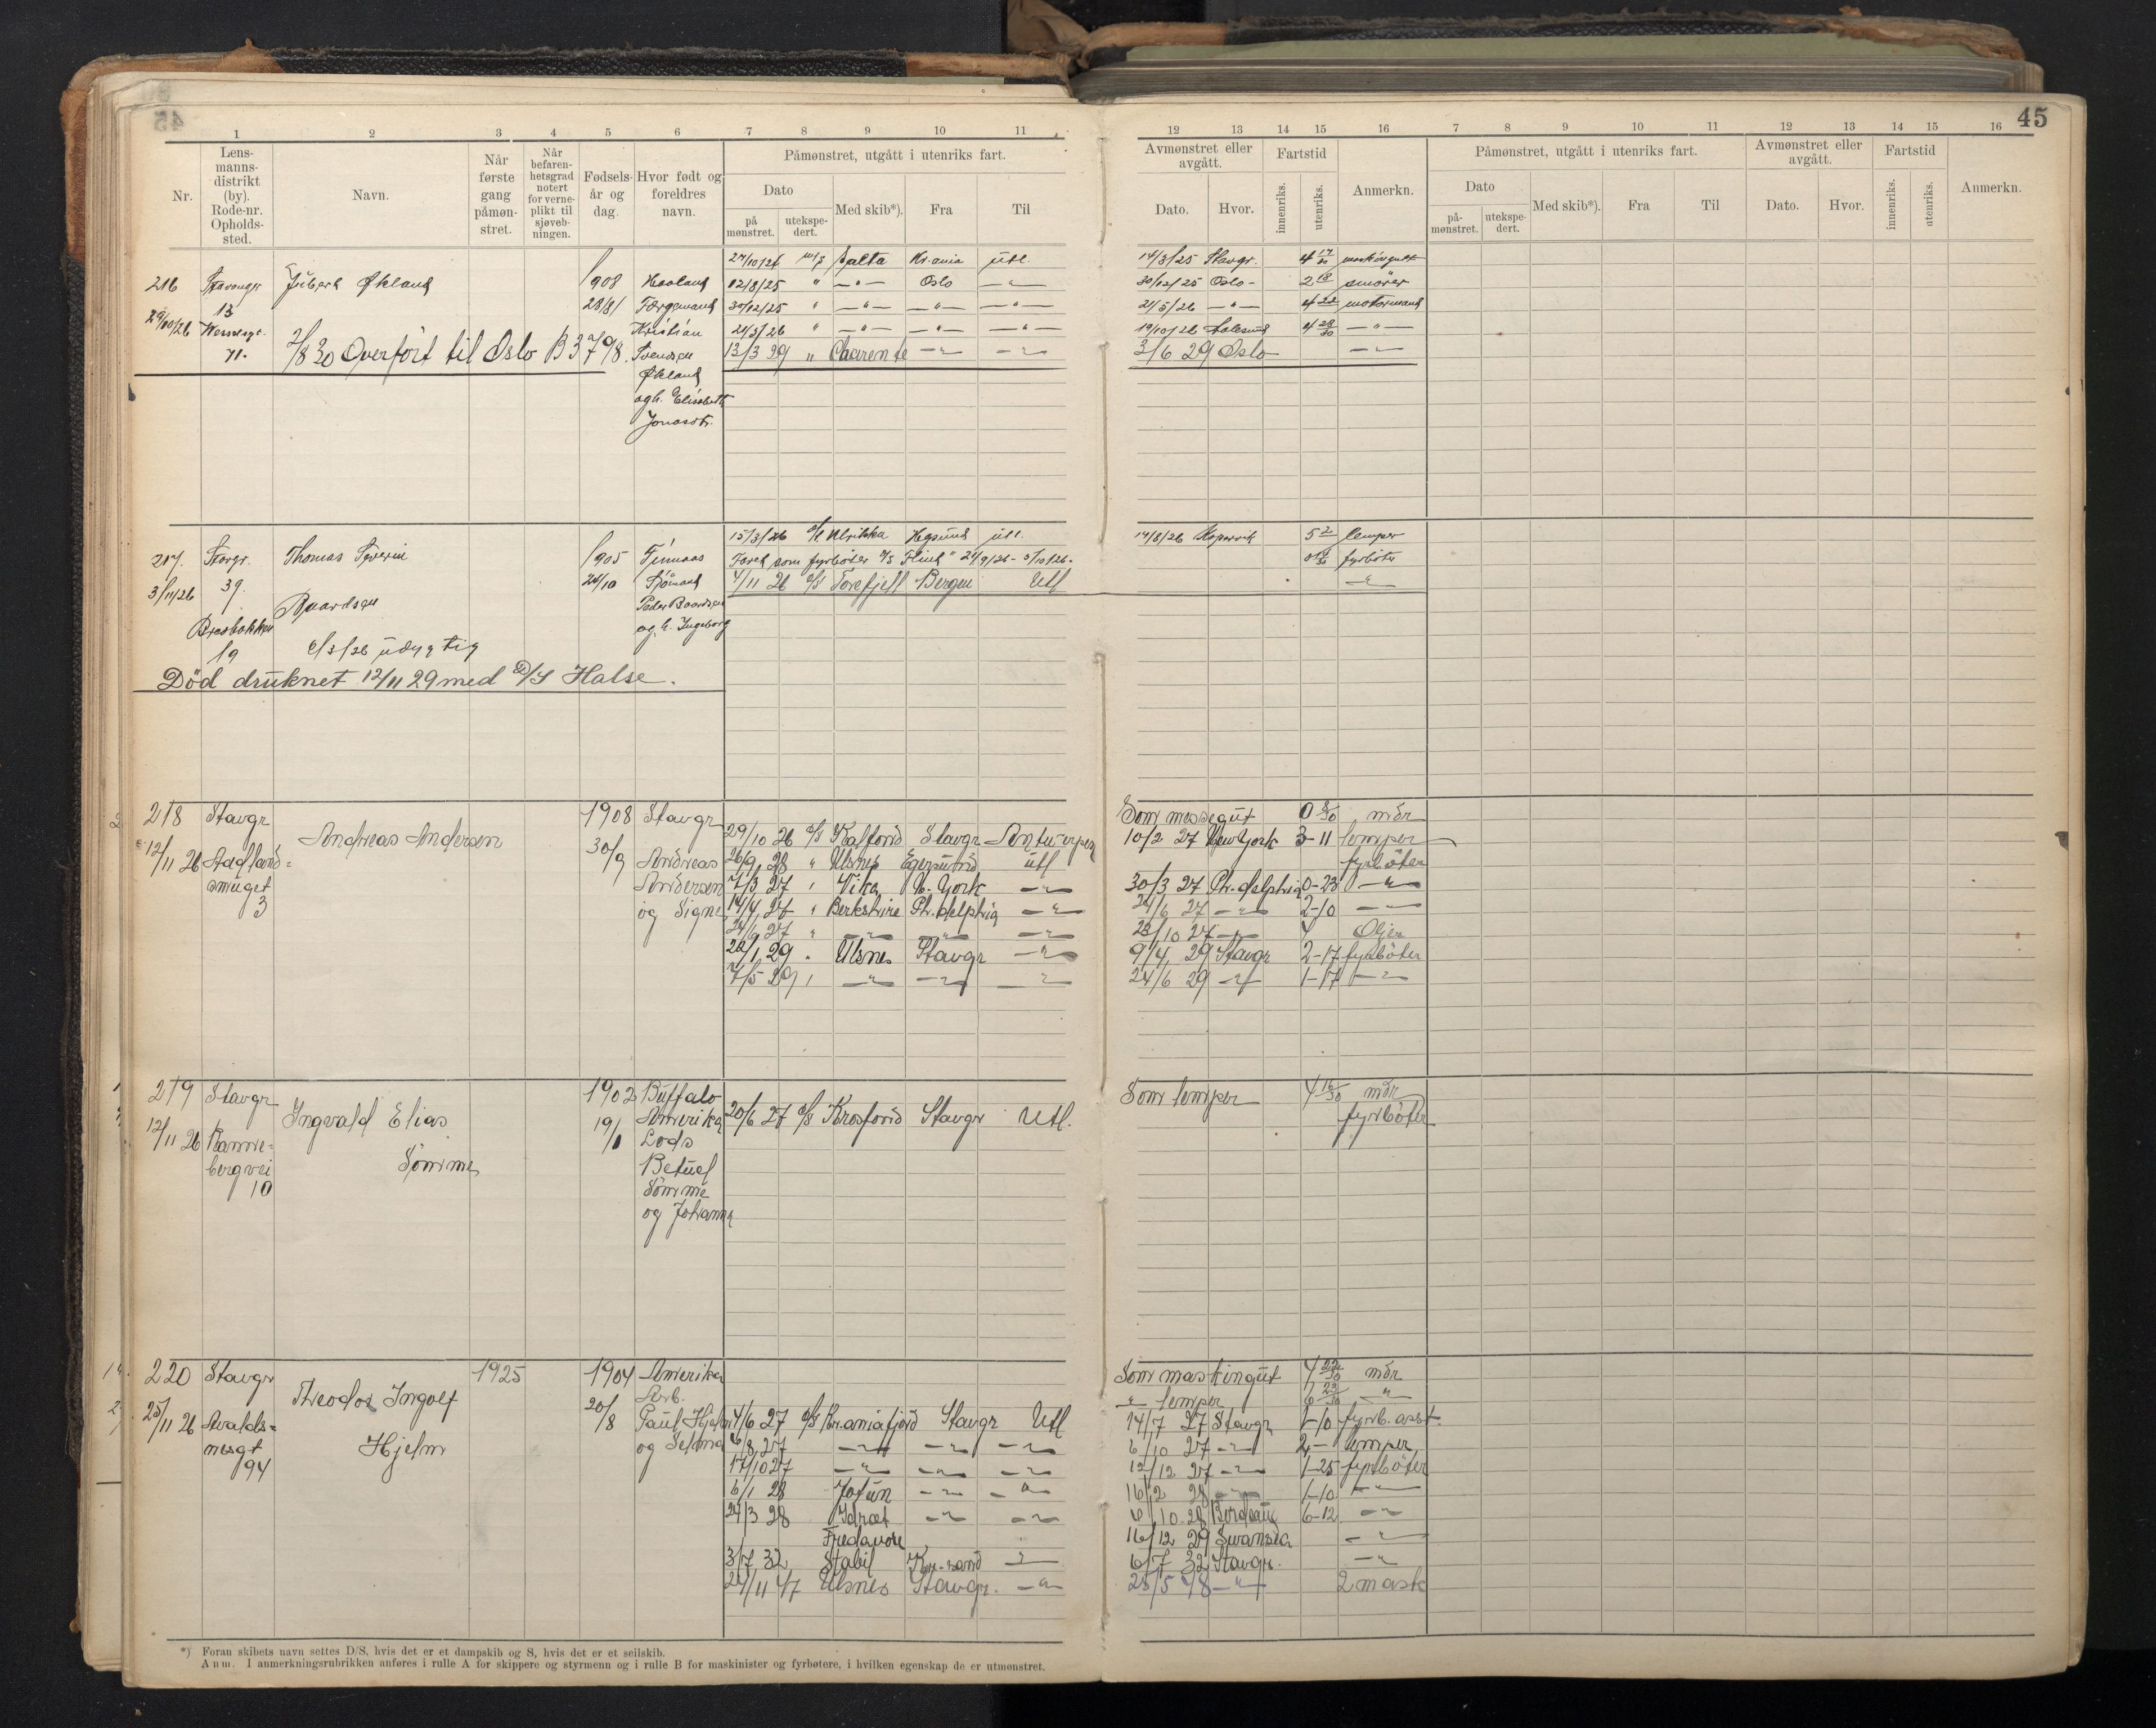 45
1 2 3 4 5 6 7 8 9 10 11
12 13 14 15 16 7 8 9 10 11 12 13 14 15 16
Nr.
Lens-
manns-
distrikt
(by).
Rode-nr.
Opholds-
sted.
Navn.
Når
første
gang
påmøn-
stret.
Når
befaren-
hetsgrad
notert
for verne-
plikt til
sjøveb-
ningen.
Fødsels-
år og
dag.
Hvor født og
foreldres
navn.
Påmønstret, utgått i utenriks fart.
Dato
på
mønstret.
utekspe-
dert.
Med skib*).
Fra
Til
Avmønstret eller
avgått.
Dato.
Hvor.
Fartstid
innenriks.
utenriks.
Anmerkn.
Påmønstret, utgått i utenriks fart.
Dato
på-
mønstret.
utekspe-
dert.
Med skib*).
Fra
Til
Avmønstret eller
avgått.
Dato.
Hvor.
Fartstid
innenriks.
utenriks.
Anmerkn.
216 Stavanger Økland 1908 Kr.ania Utl. 14/3/25 Stavgr.
13 28/8 Færgemand 12/8/25 " -"- Oslo -"- 30/12/25 Oslo 2 18 smører
29/10/26 Kristian 30/12/25 " -"- -"- -"- 21/5/26 -"- 4 22 motormand
71. Svendsen 24/5/26 " -"- -"- -"- 19/10/26 Aalesund 4 28/30 -"-
2/8 30 Overført til Oslo B 3798. 13/3 29 " Charente -"- -"- 3/6 29 Oslo -"-
Økland
og h. Elisabeth
Jonasdtr.
217. Stavgr. Thomas Severin 1905 Finnaas 15/3/26 Ulrikka Hgsund Utl. 14/8/26 Kopervik 5 2 lemper
3/11/26 39. 24/10 Sjømand Faret som fyrbøter D/S Flint" 21/9/26 - 5/10/26. fyrbøter
Baardsen Peder Baardsen 4/11 26 D/S Torefjell Bergen Utl -"-
og h. Ingeborg
19 udygtig
Död druknet 12/11 29 med D/S Halse.
218 Stavgr Andreas Andersen 1908 Stavgr Som messegut 0 mdr
12/11 26 30/9 Andreas 29/10 26 D/S Stavgr Antwerpen 10/2 27 New York 3-11 lemper
smuget Andersen 26/9 28 " Ulsnes Egersund Utl fyrböter
3 og Signe 7/3 27 " Vika N. York -"- 30/3 27 Ph.delphia 0-23 -"-
14/4 27 " Berkshire Ph.delphia -"- 24/6 27 -"- 2-10 -"-
24/6 27 " -"- -"- -"- 23/10 27 -"- 4 Oljer
22/1 29 " Ulsnes Stavgr -"- 9/4 29 Stavgr 2-17 fyrböter
7/5 29 " -"- -"- -"- 24/6 29 -"- 1-17 -"-
219 Stavgr Ingvald Elias 1902 Buffalo Som lemper 4 16/30 mdr
12/11 26 Sömme 19/1 Amerika 20/6 27 D/S Krosfond Stavgr Utl. fyrböter
bergvei Lods
10 Betuel
Sömme
og Johanna
220 Stavgr Theodor Ingolf 1925 1904 Amerika Som maskingut 4 22/30 mdr
25/11 26 Avalds- Hjelm 20/8 Arb. " lemper "
nesgt Paul Hjelm 4/6 27 D/S Kr.aniafjord Stavgr Utl 14/7 27 Stavgr 1-10 fyrb. asst.
94 og Selma 6/8 27 -"- -"- -"- 6/10 27 -"- 2- lemper
17/10 27 -"- -"- -"- 12/12 27 -"- 1-25 fyrböter
6/1 28 Jotun -"- -"- 16/2 28 -"- 1-10 -"-
24/3 28 Idræt -"- -"- 10 28 Bordeaux 6-12 -"-
Fredavore 16/12 29 Swansea -"-
3/7 32 Stabil Kr.sand -"- 6/7 32 Stavgr. -"-
24/11 47 Ulsnes Stavgr. -"- 28/5 48 -"- 2 mask
*) Foran skibets navn settes D/S, hvis det er et dampskib og S, hvis det er et seilskib.
Anm. I anmerkningsrubrikken anføres i rulle A for skippere og styrmenn og i rulle B for maskinister og fyrbøtere, i hvilken egenskap de er utmønstret.